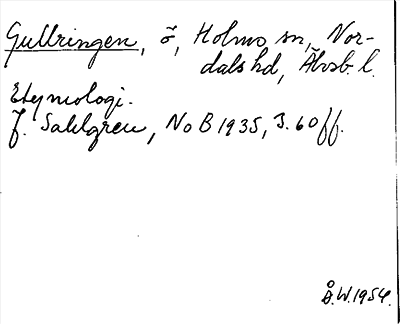 Gullringen, ö, Holms sn, Nor-
dals hd, Älvsb. l.
Etymologi.
J. Sahlgren, NoB 1935, S. 60 ff.
Å.W.1954.